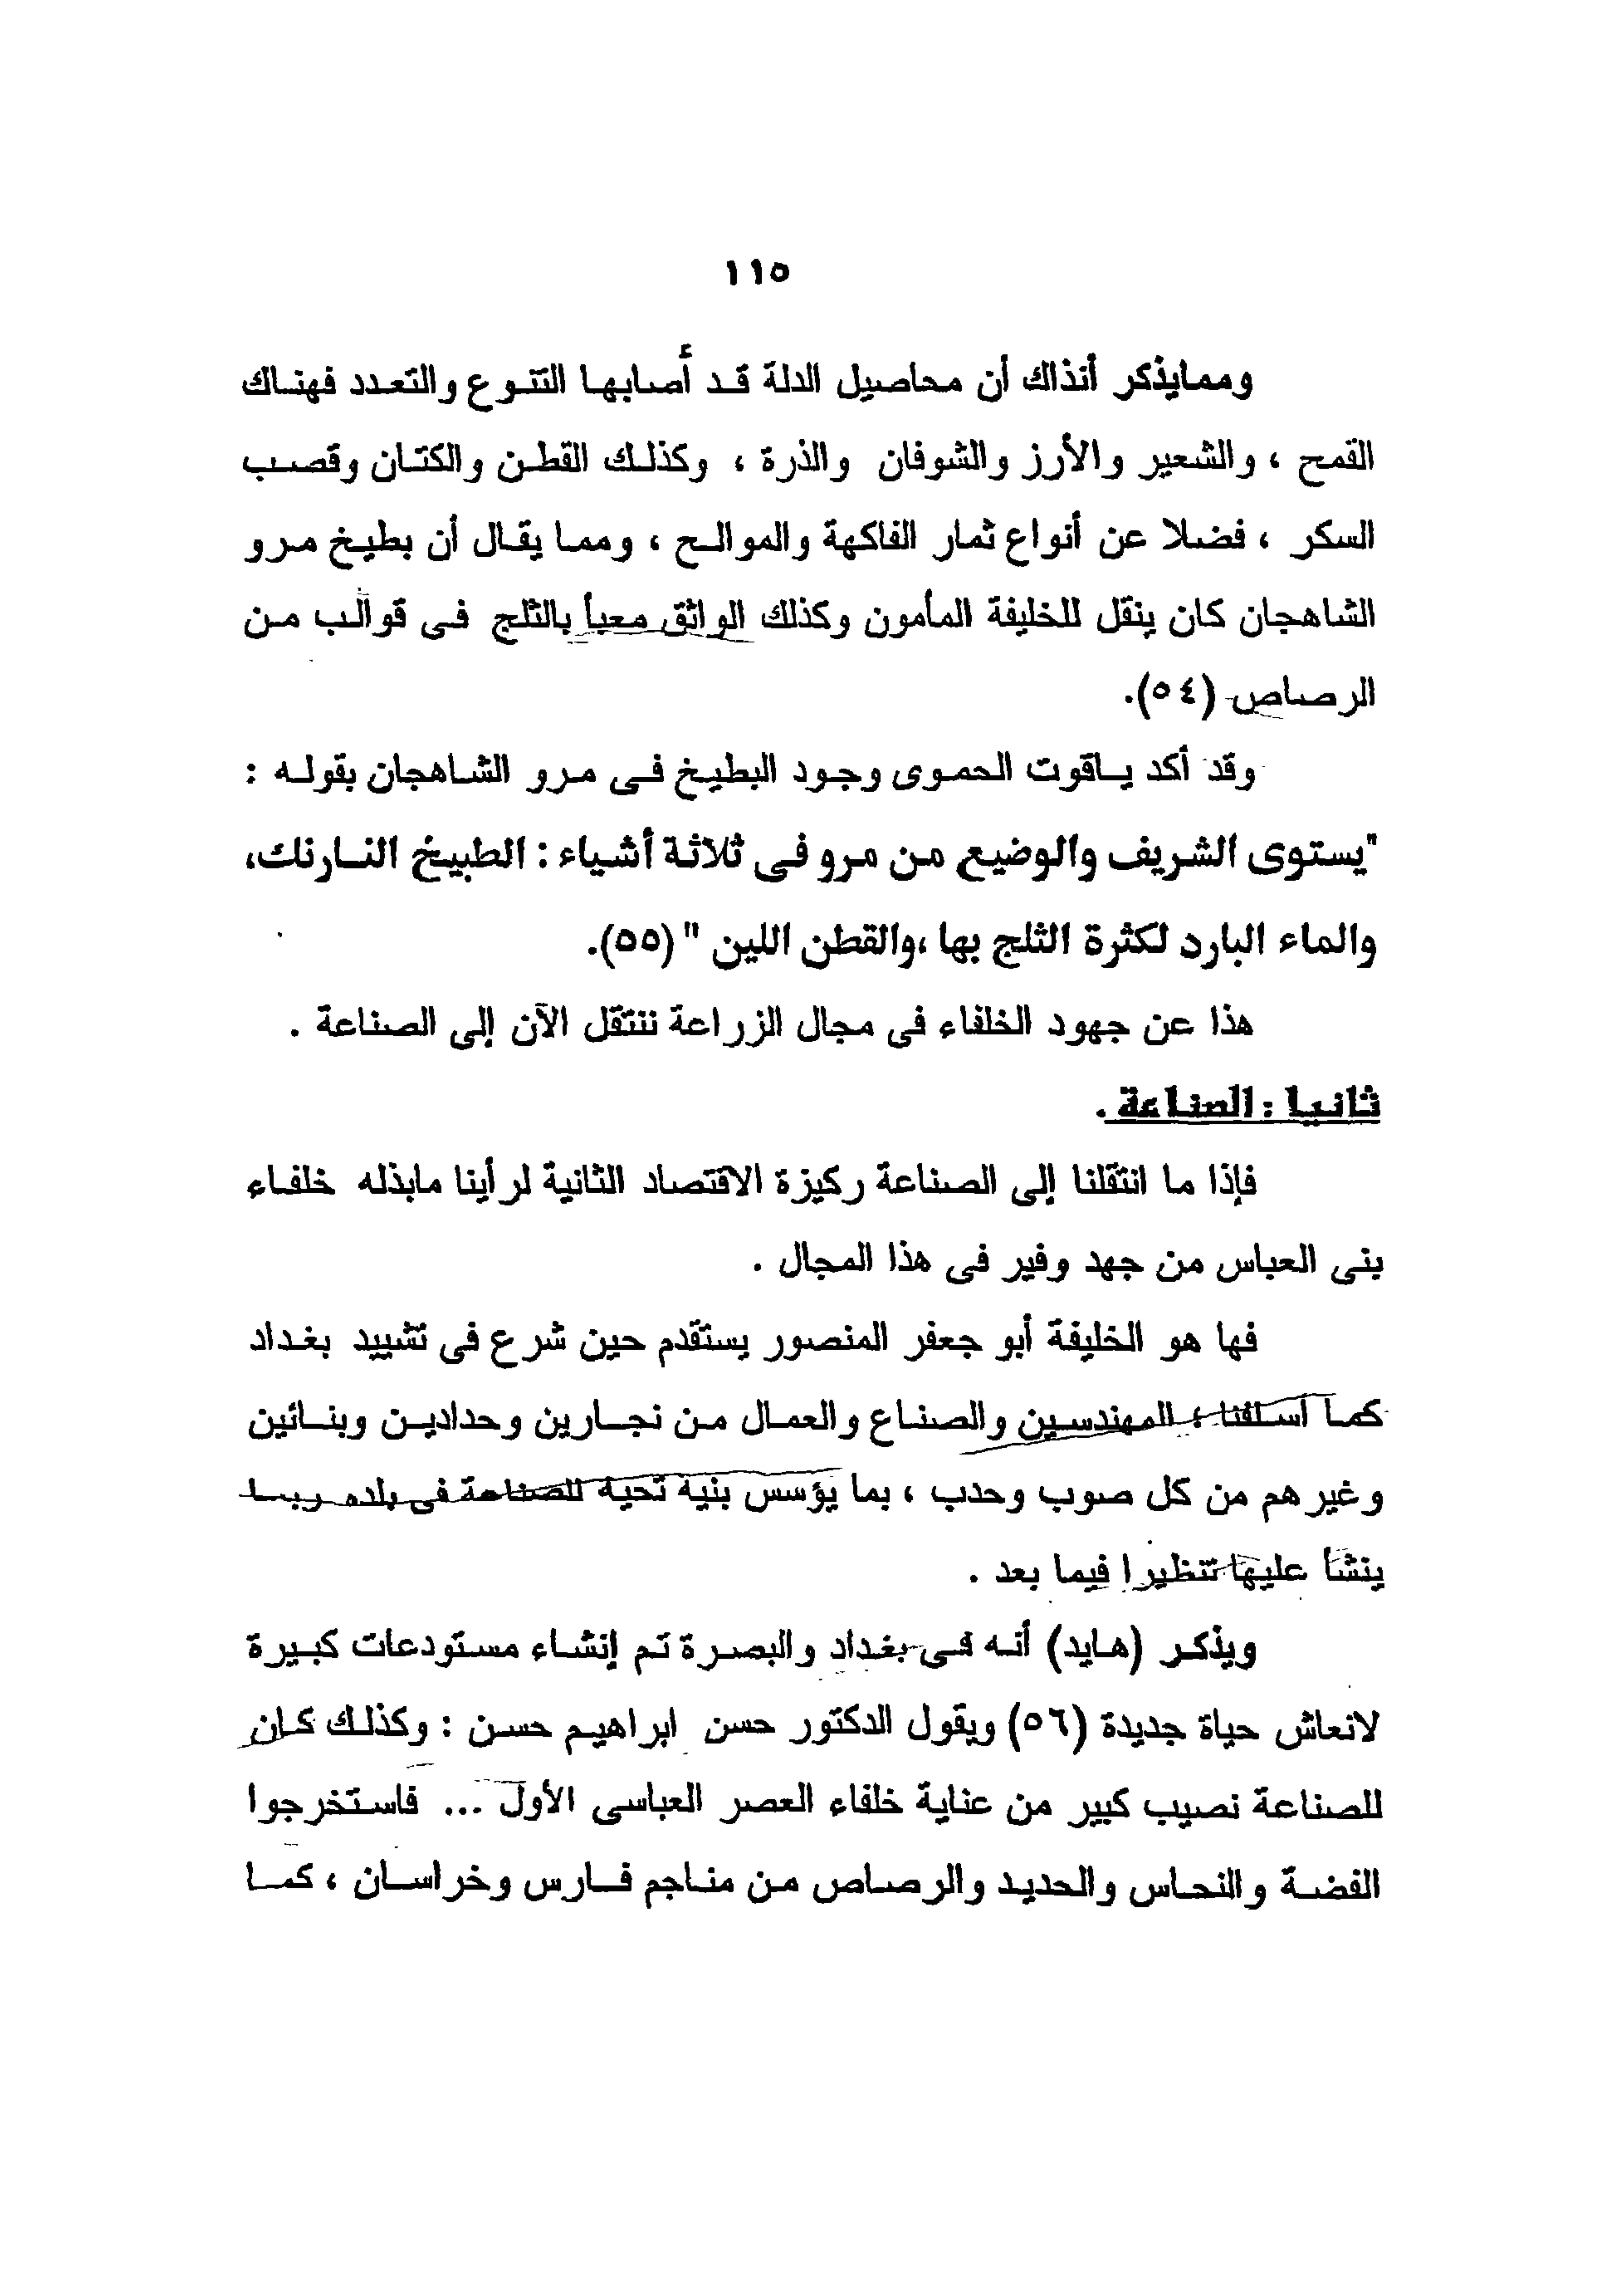 ١١٥
وممايذكر أنذاك أن محاصيل الدلة قد أصابها التنوع والتعدد فهناك
القمح ، والشعير والأرز والشوفان والذرة ، وكذلك القطن والكتان وقصب
السكر ، فضلا عن أنواع ثمار الفاكهة والموالح ، ومما يقال أن بطيخ مرو
الشاهجان كان ينقل للخليفة المأمون وكذلك الواثق معبأ بالثلج فى قوالب من
الرصاص (٥٤).
وقد أكد ياقوت الحموى وجود البطيخ فى مرو الشاهجان بقوله :
"يستوى الشريف والوضيع من مرو فى ثلاثة أشياء : الطبيخ النارنك،
والماء البارد لكثرة الثلج بها ،والقطن اللين " (٥٥).
هذا عن جهود الخلفاء فى مجال الزراعة ننتقل الآن إلى الصناعة .
ثانيا : الصناعة .
فإذا ما انتقلنا إلى الصناعة ركيزة الاقتصاد الثانية لرأينا مابذله خلفاء
بنى العباس من جهد وفير فى هذا المجال .
فها هو الخليفة أبو جعفر المنصور يستقدم حين شرع فى تشييد بغداد
كما أسلفنا ؛ المهندسين والصناع والعمال من نجارين وحدادين وبنائين
وغيرهم من كل صوب وحدب ، بما يؤسس بنية تحية للصناعة فى بلده ربما
ينشأ عليها تنظيرا فيما بعد .
ويذكر (هايد) أنه فى بغداد والبصرة تم إنشاء مستودعات كبيرة
لانعاش حياة جديدة (٥٦) ويقول الدكتور حسن ابراهيم حسن : وكذلك كان
للصناعة نصيب كبير من عناية خلفاء العصر العباسى الأول ... فاستخرجوا
الفضة والنحاس والحديد والرصاص من مناجم فارس وخراسان ، كما